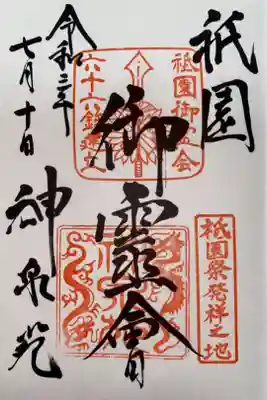 祇園
御靈會
令和三年
七月十日
神泉苑
祇園御霊会
六十六鉾建之
祇園祭発祥之地